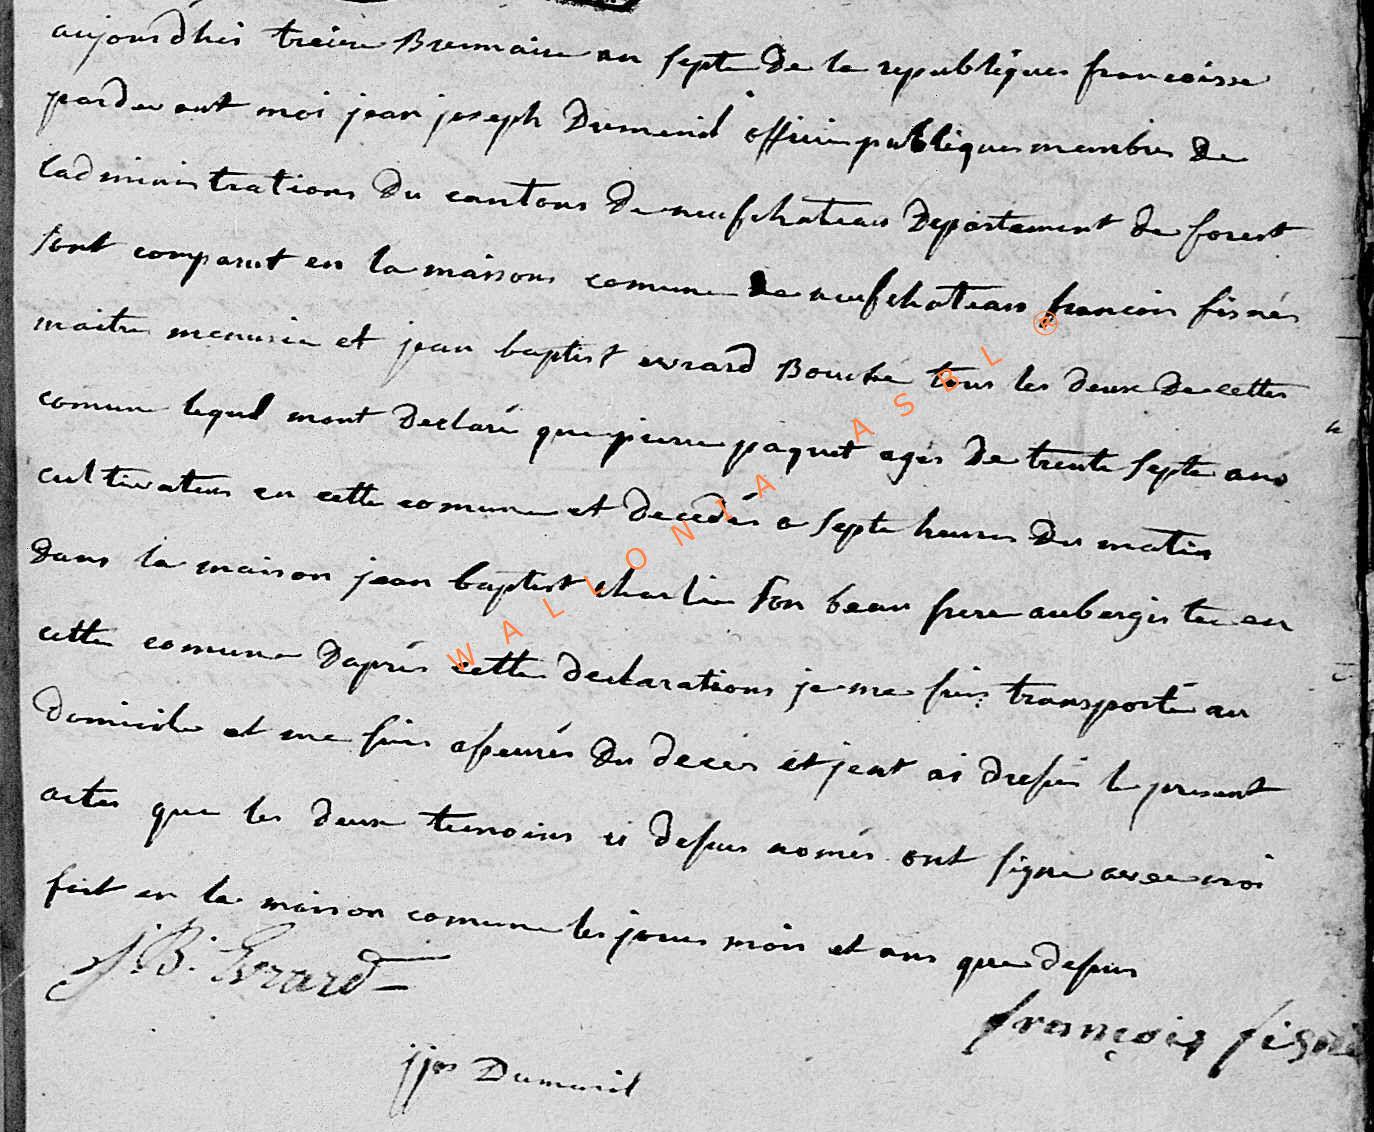 aujourdhis treize Brumaire an septe De la republiques francoisse
pardevant moi jean joseph Dumenil officier publiques membres de
ladministrations Du cantons De neufchateaus Departement de forest
sont comparut en la maisons comune de neufchateaus francois fisnés
maitre menusie et jean baptist evrard Bouché tous les deux De cettes
comune lequel mont Declaré que pierre paquet ages De trente septe ans
cultivateurs en cette comune et decedés a septe heures Du matin
Dans la maison jean baptist charlie son beau frere aubergiste en
cette comune Daprés cette declarations je me suis transporté au
domicile et me suis aseurés Du deces et jeat ai dressé le present
actes que les deux temoins ci dessus només ont signe avec moi
fait en la maison comune les jours mois et ans que dessus
J.B. Evrard
françois fisné
jjos Dumenil
WALLONIA ASBL ®